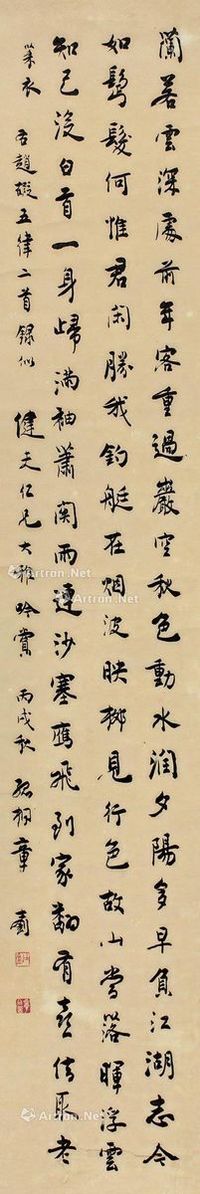 蘭若雲深處前年客重過巖空秋色動水濶夕陽多早負江湖志今
如鬢髮何惟君閑勝我釣艇在烟波映柳見行色故山當落暉浮雲
知己沒白首一身歸滿袖蕭関雨連沙塞鴈飛到家翻有喜借取老
萊衣
右趙嘏五律二首録似 健夫仁兄大雅吟賞 丙戌秋 孤桐章士釗
Artron.Net